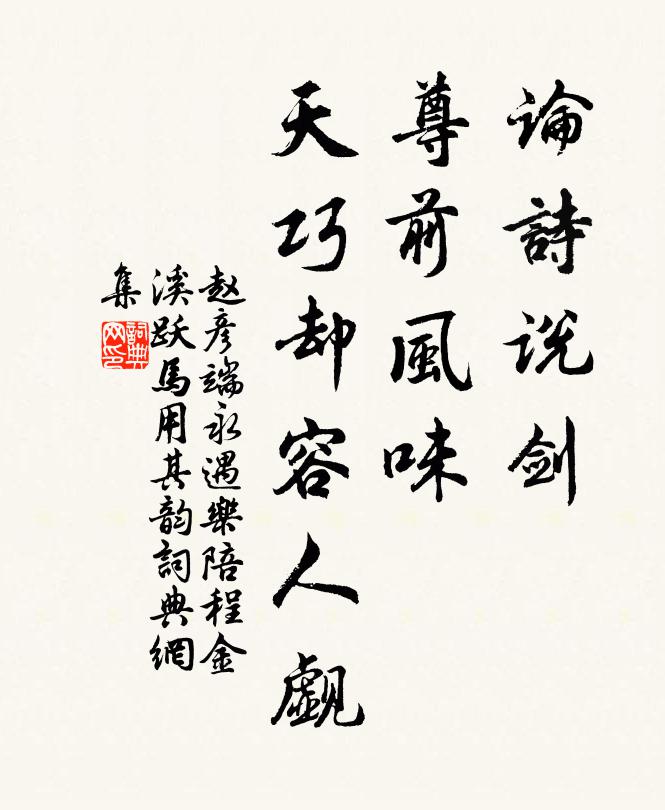 論詩説剑
尊前風味
天巧却容人覰
赵彦端永遇樂陪程金
溪跃馬用其韵詞典網
集
詞典
网印